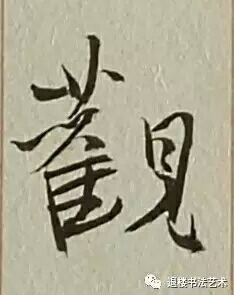 觀
退楼书法艺术